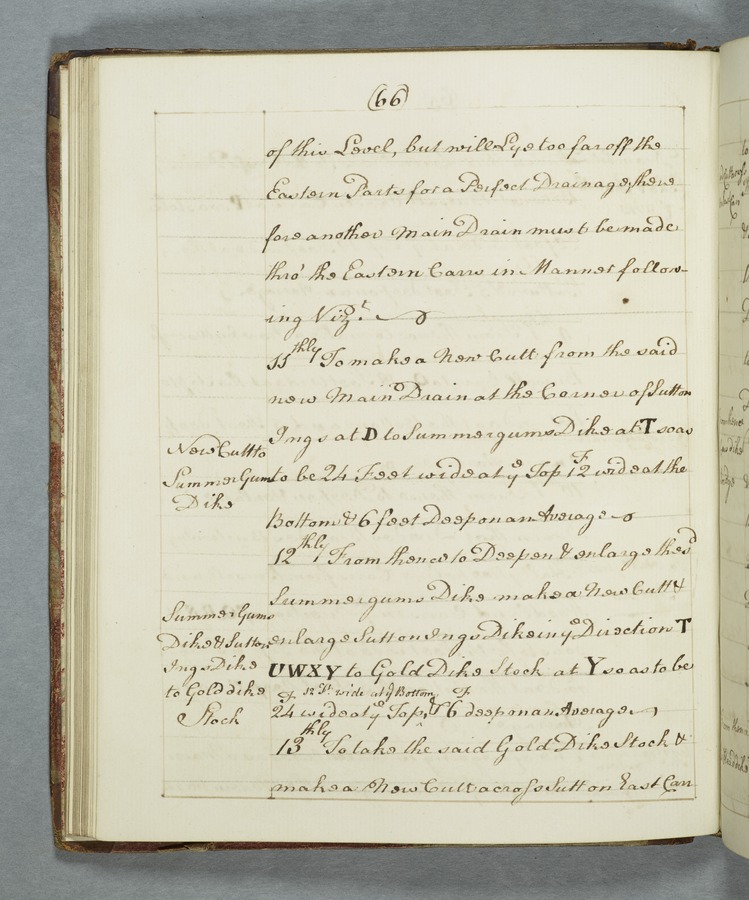 (66)
of this Level, but will Lye too far off the
Eastern Parts for a Perfect Drainage, there
fore another Main Drain must be made
thro' the Eastern Carrs in Manner follow-
ing Viz.t
11thly To make a New Cutt from the said
new Main Drain at the Corner of Sutton
Ings at D to Summergums Dike at T so as
New Cutt to
Summer Gums
Dike
to be 24 Feet wide at ye Top 12 F wide at the
Bottom & 6 feet Deep on an Average
12thly From thence to Deepen & enlarge the sd
Summergums Dike make a New Cutt &
Summer Gums
Dike & Sutton
Ings Dike
to Gold dike
Stock
enlarge Sutton Ings Dike in ye Direction T
UWXY to Gold Dike Stock at Y so as to be
12 Ft. wide at ye Bottom
24 F wide at ye Top, & 6 F deep on an Average
13thly To take the said Gold Dike Stock &
make a New Cutt across Sutton East Carr